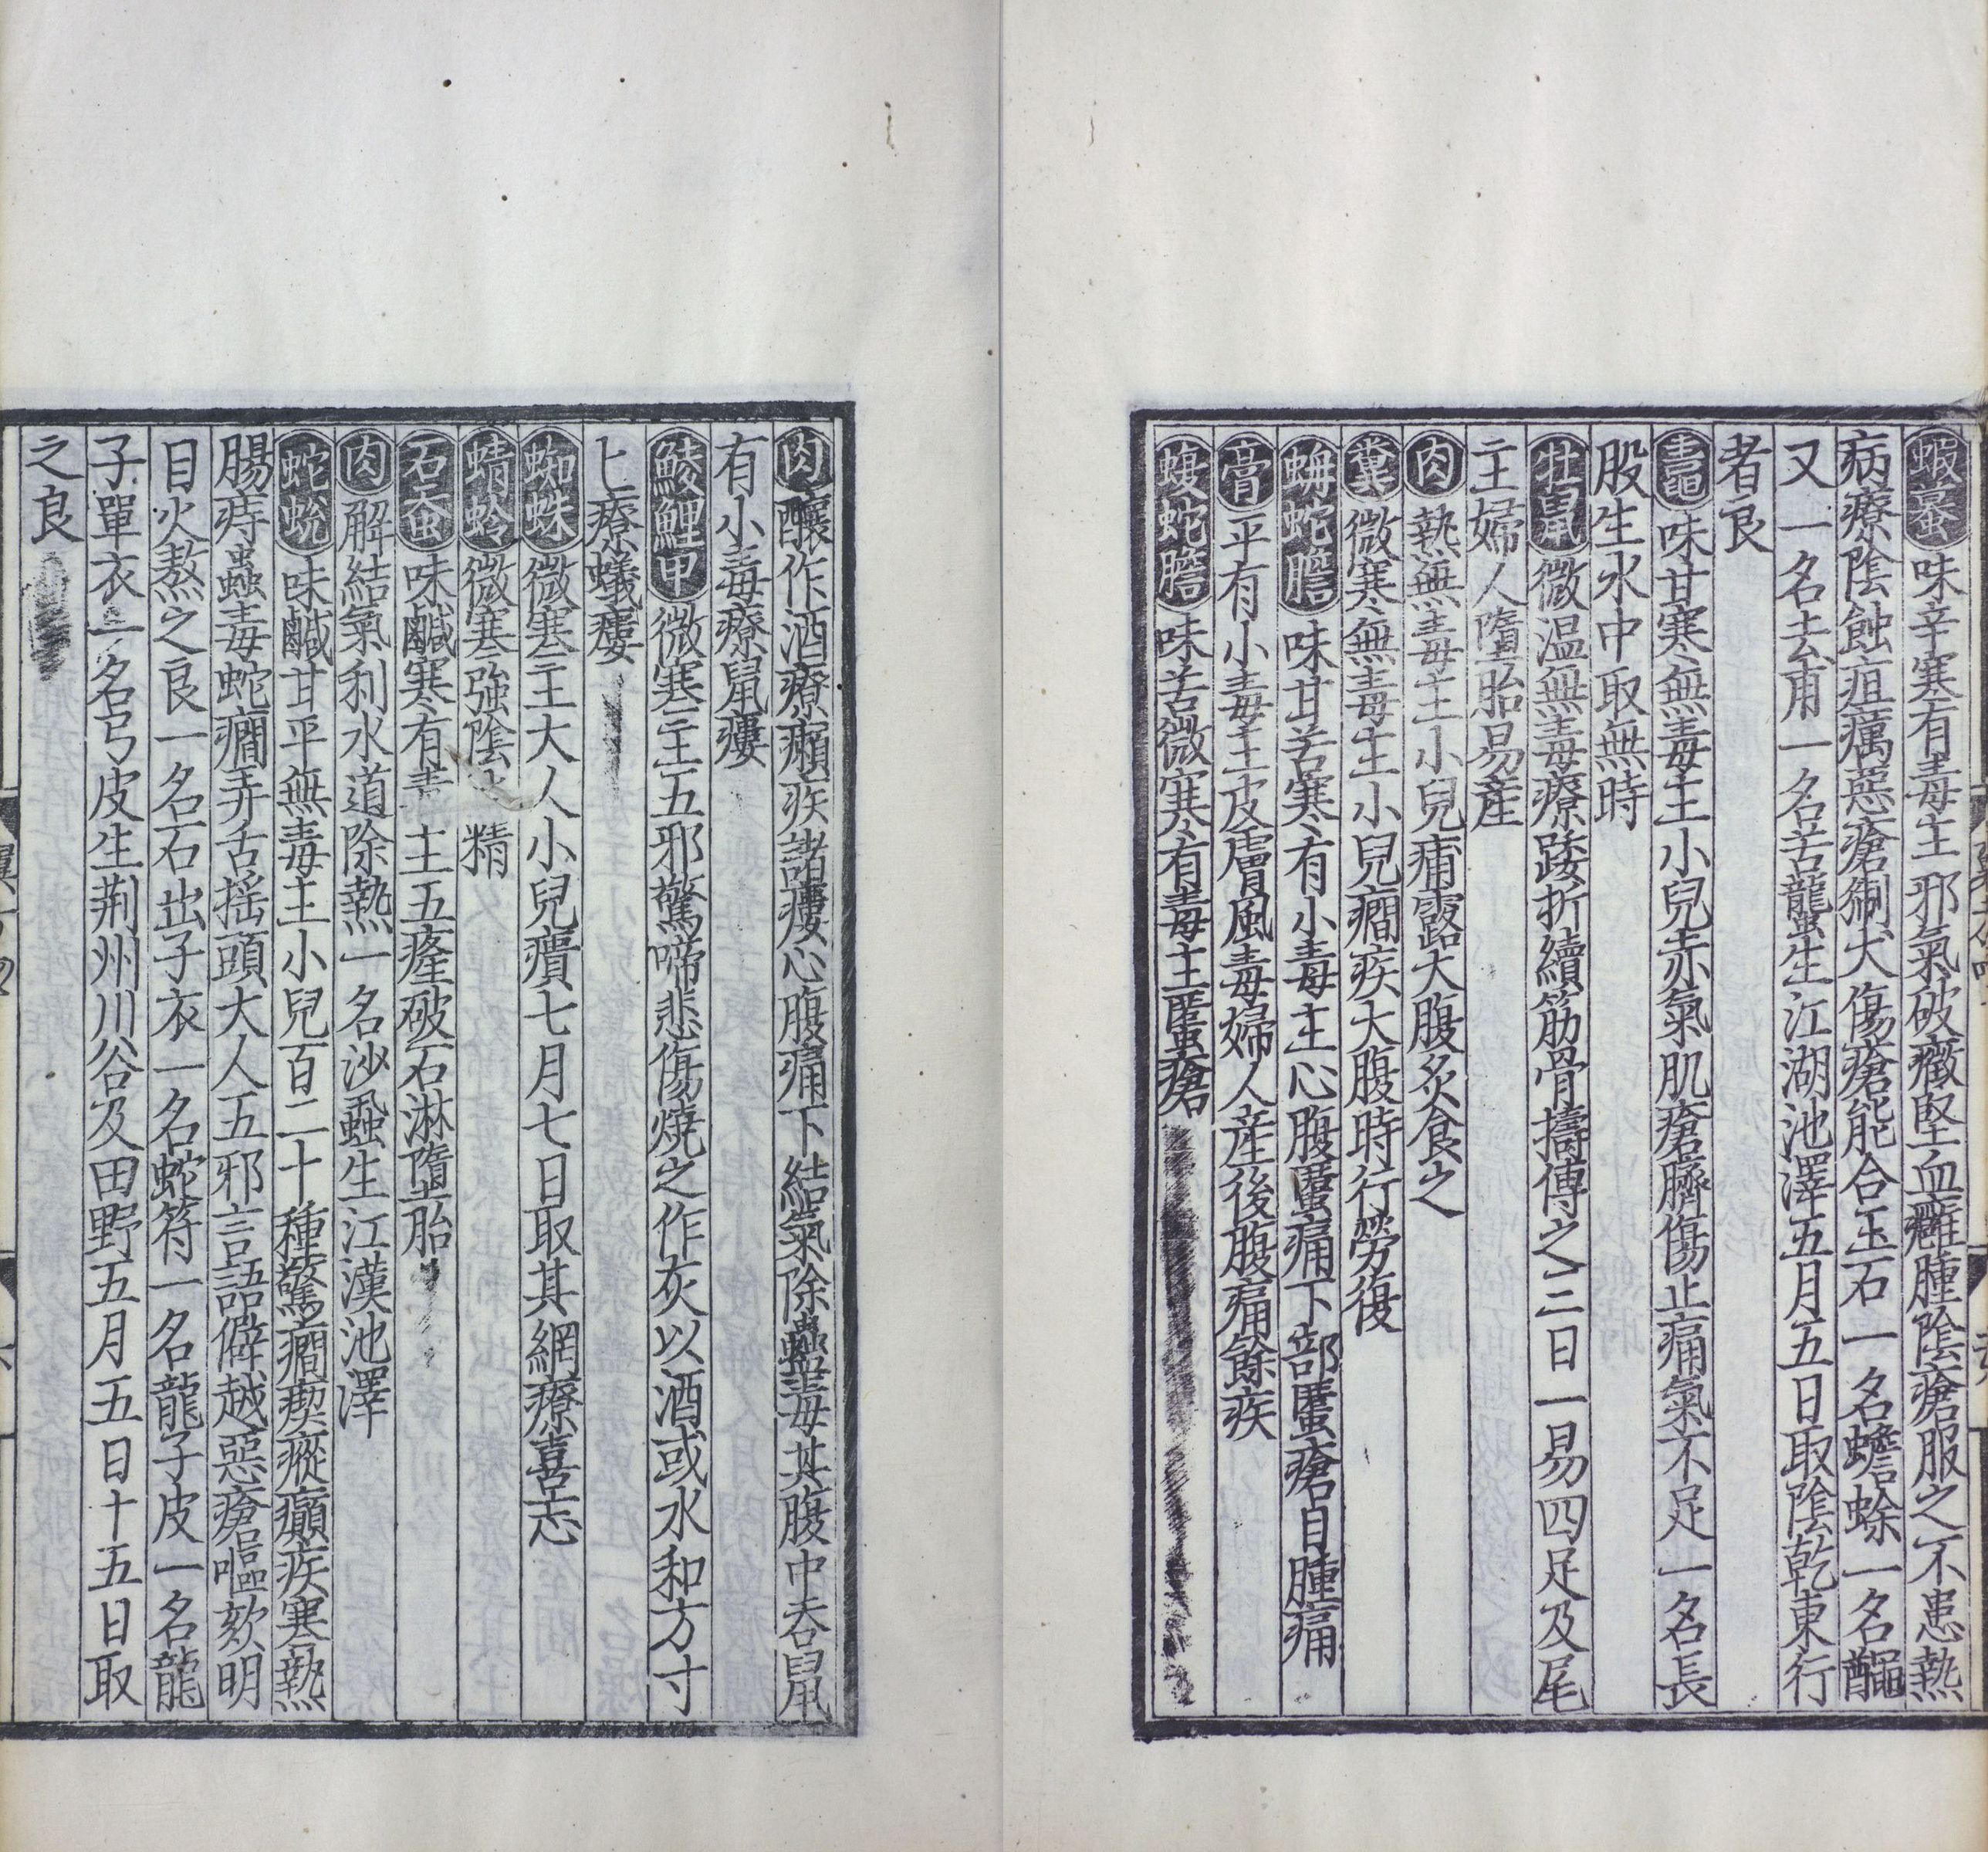 蝦蟇味辛寒有毒主邪氣破癥堅血癰腫陰瘡服之不患熱
病療陰蝕疽癘惡瘡猘犬傷瘡能合玉石一名蟾蜍一名䵷
又一名去甫一名苦龍蠪生江湖池澤五月五日取陰乾東行
者良
䵷味甘寒無毒主小兒赤氣肌瘡臍傷止痛氣不足一名長
股生水中取無時
牡鼠微温無毒療踒折續筋骨擣傅之三日一易四足及尾
主婦人墮胎易產
肉熱無毒主小兒痡露大腹炙食之
糞微寒無毒主小兒癎疾大腹時行勞復
蚺蛇膽味甘苦寒有小毒主心腹䘌痛下部䘌瘡目腫痛
膏平有小毒主皮膚風毒婦人産後腹痛餘疾
蝮蛇膽味苦微寒有毒主䘌瘡
肉釀作酒療癩疾諸瘻心腹痛下結氣除蠱毒其腹中吞鼠
有小毒療鼠瘻
鯪鯉甲微寒主五邪驚啼悲傷燒之作灰以酒或水和方寸
匕療蟻瘻
蜘蛛微寒主大人小兒㿉七月七日取其網療喜忘
蜻蛉微寒強陰精
石蚕味鹹寒有主五癃破石淋墮胎
肉解結氣利水道除熱一名沙蝨生江漢池澤
蛇蛻味鹹甘平無毒主小兒百二十種驚癎瘈瘲癲疾寒熱
腸痔蟲毒蛇癎弄舌摇頭大人五邪言語僻越惡瘡嘔欬明
目火熬之良一名石㐀子衣一名蛇符一名龍子皮一名龍
子單衣一名弓皮生荆州川谷及田野五月五日十五日取
之良